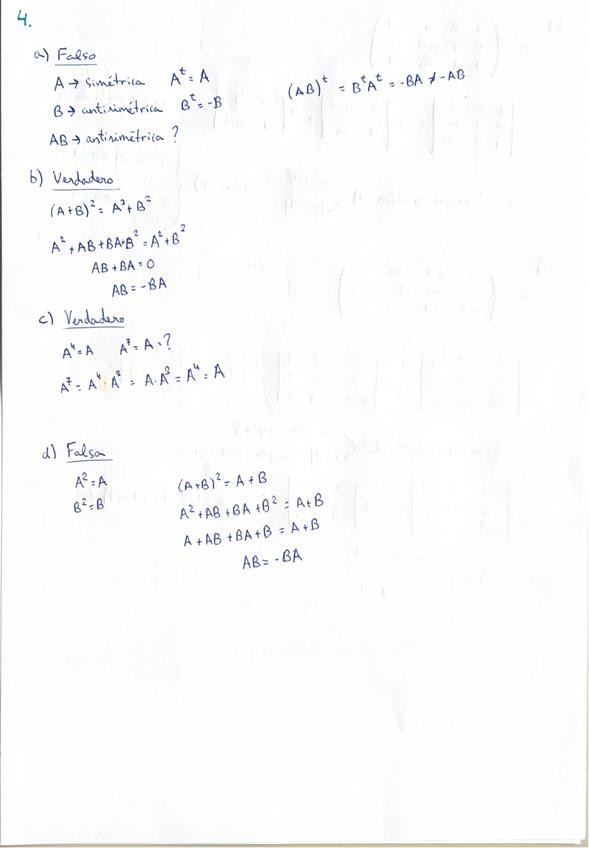 4.
a) Falso
A → simétrica Aᵗ = A
B → antisimétrica Bᵗ = -B
AB → antisimétrica ?
(AB)ᵗ = BᵗAᵗ = -BA ≠ -AB
b) Verdadero
(A+B)² = A² + B²
A² + AB + BA + B² = A² + B²
AB + BA = 0
AB = -BA
c) Verdadero
A⁴ = A A⁷ = A = ?
A⁷ = A⁴ · A³ = A · A³ = A⁴ = A
d) Falsa
A² = A
B² = B
(A+B)² = A + B
A² + AB + BA + B² = A + B
A + AB + BA + B = A + B
AB = -BA